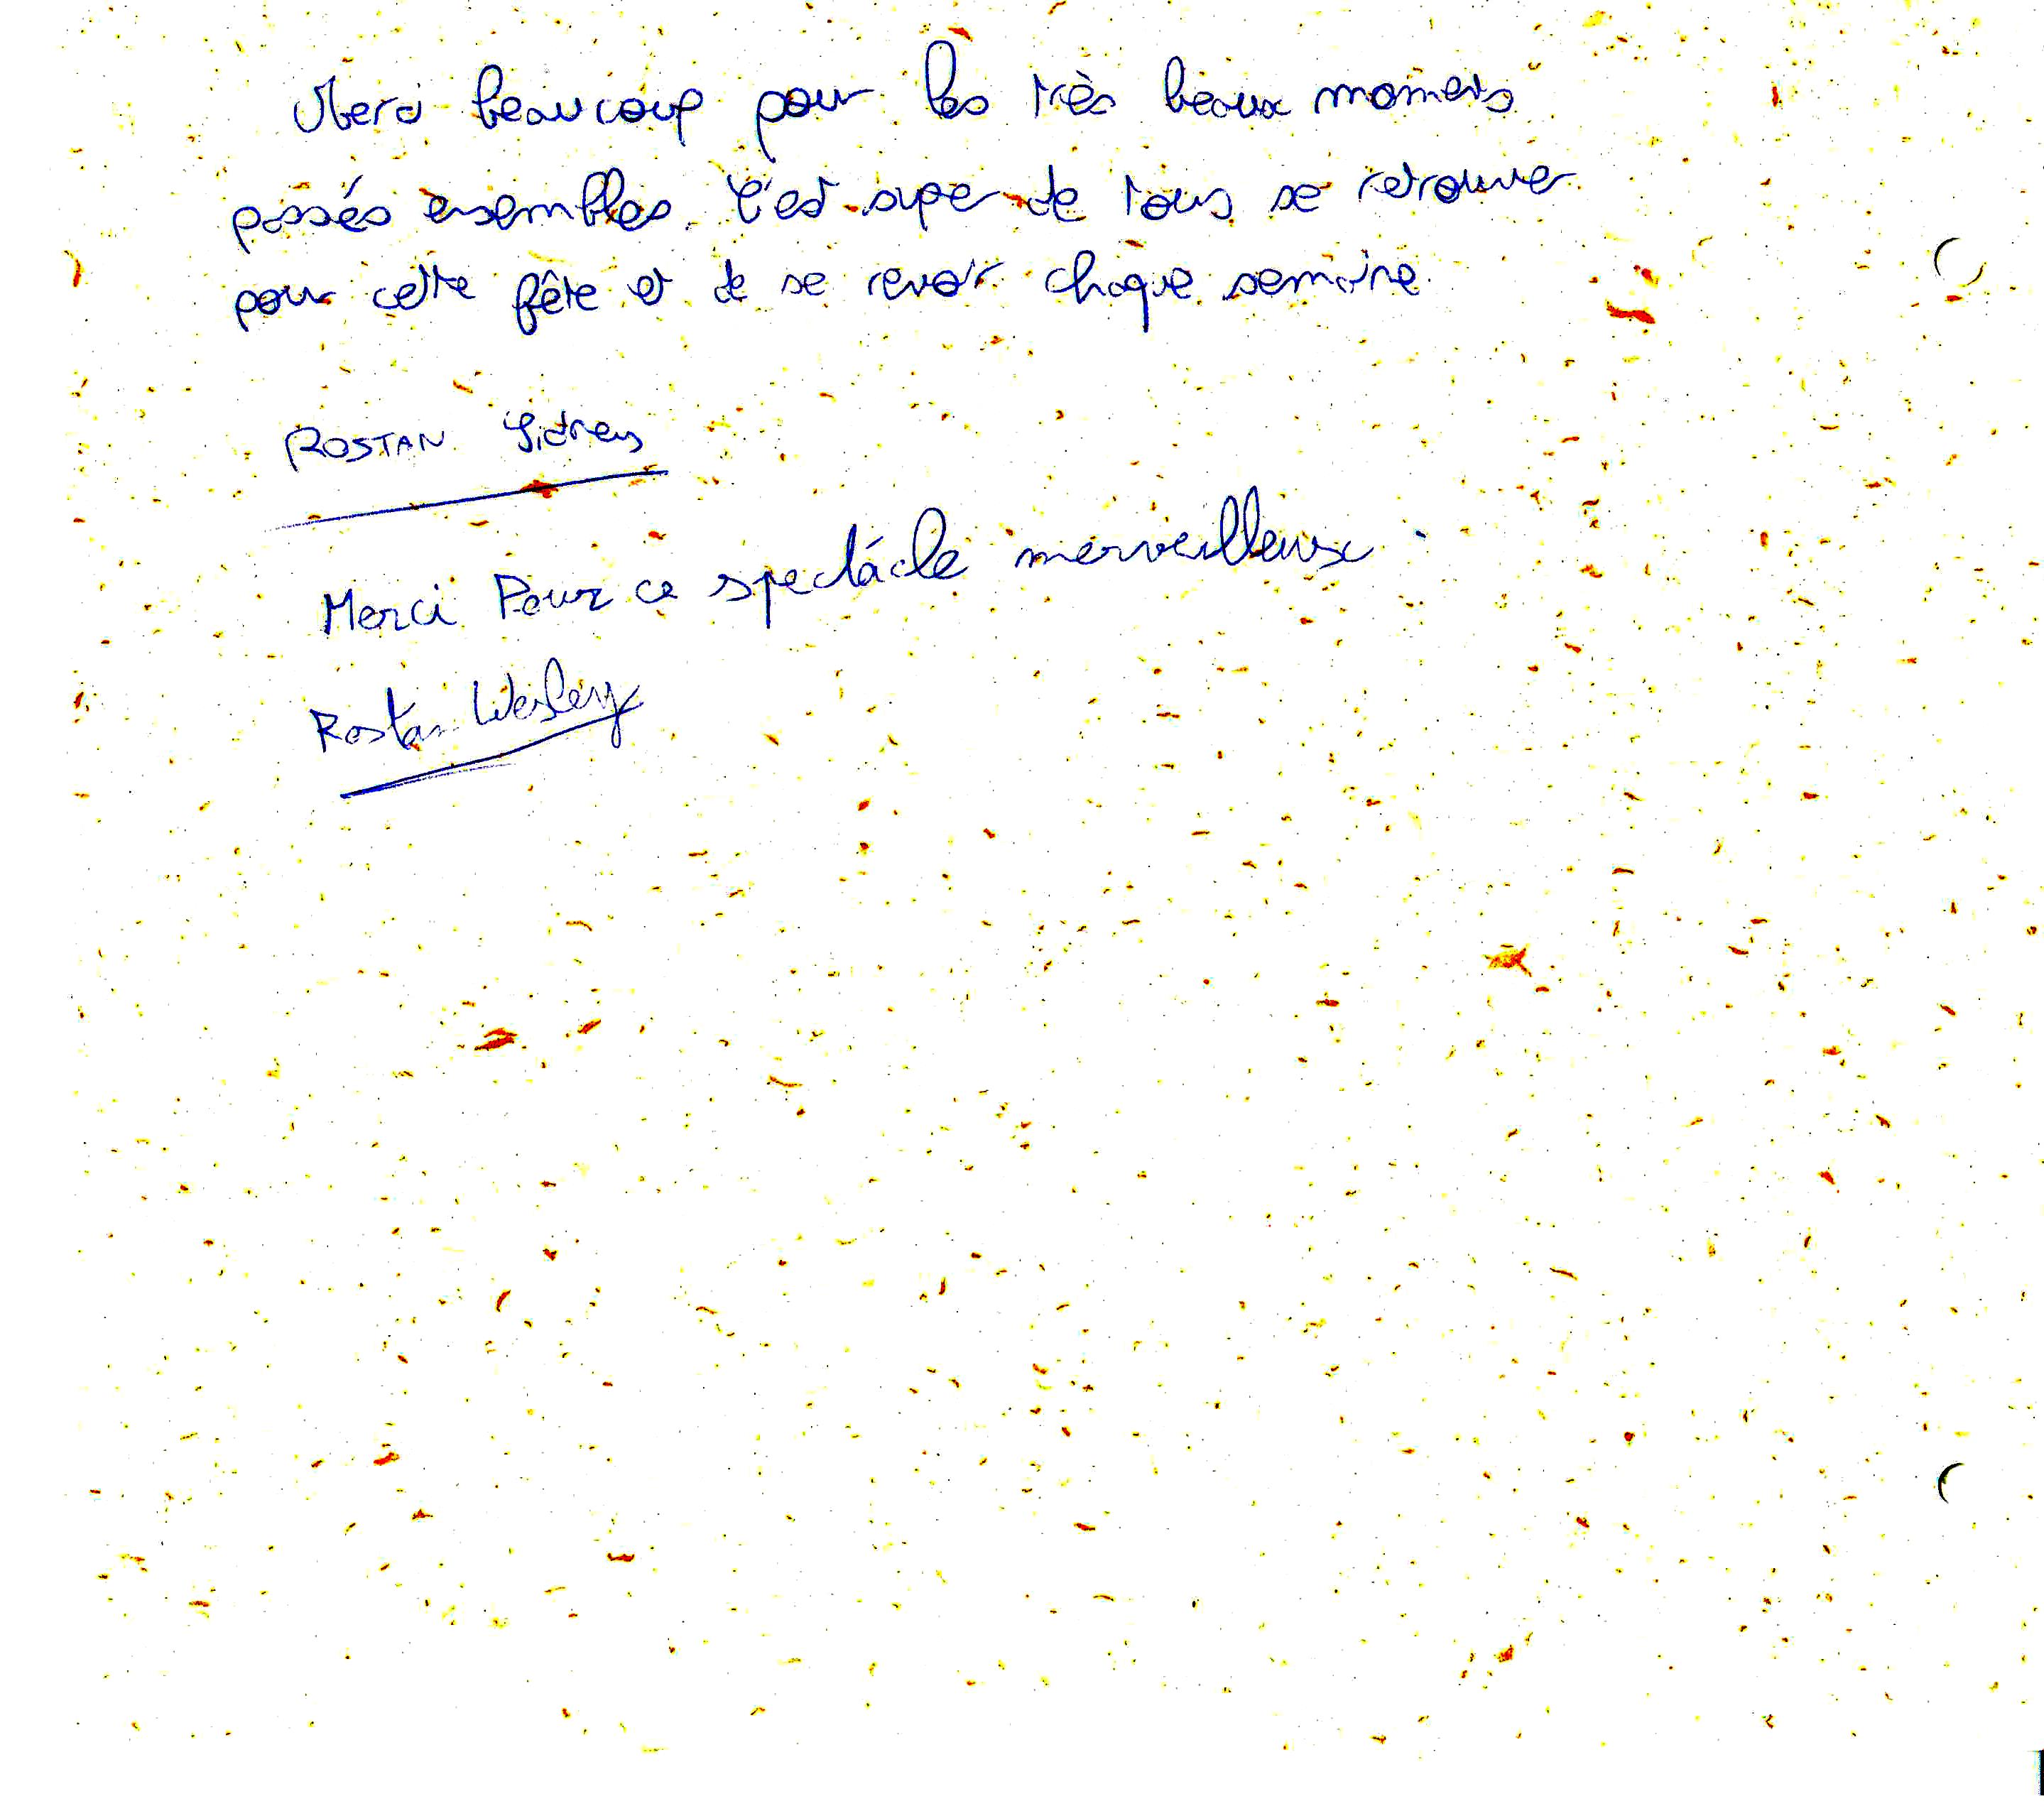 Merci beaucoup pour les très beaux moments
passés ensembles. C'est super de tous se retrouver
pour cette fête et de se revoir chaque semaine.
ROSTAN Sidney
Merci Pour ce spectácle merveilleux.
Rostan Wesley